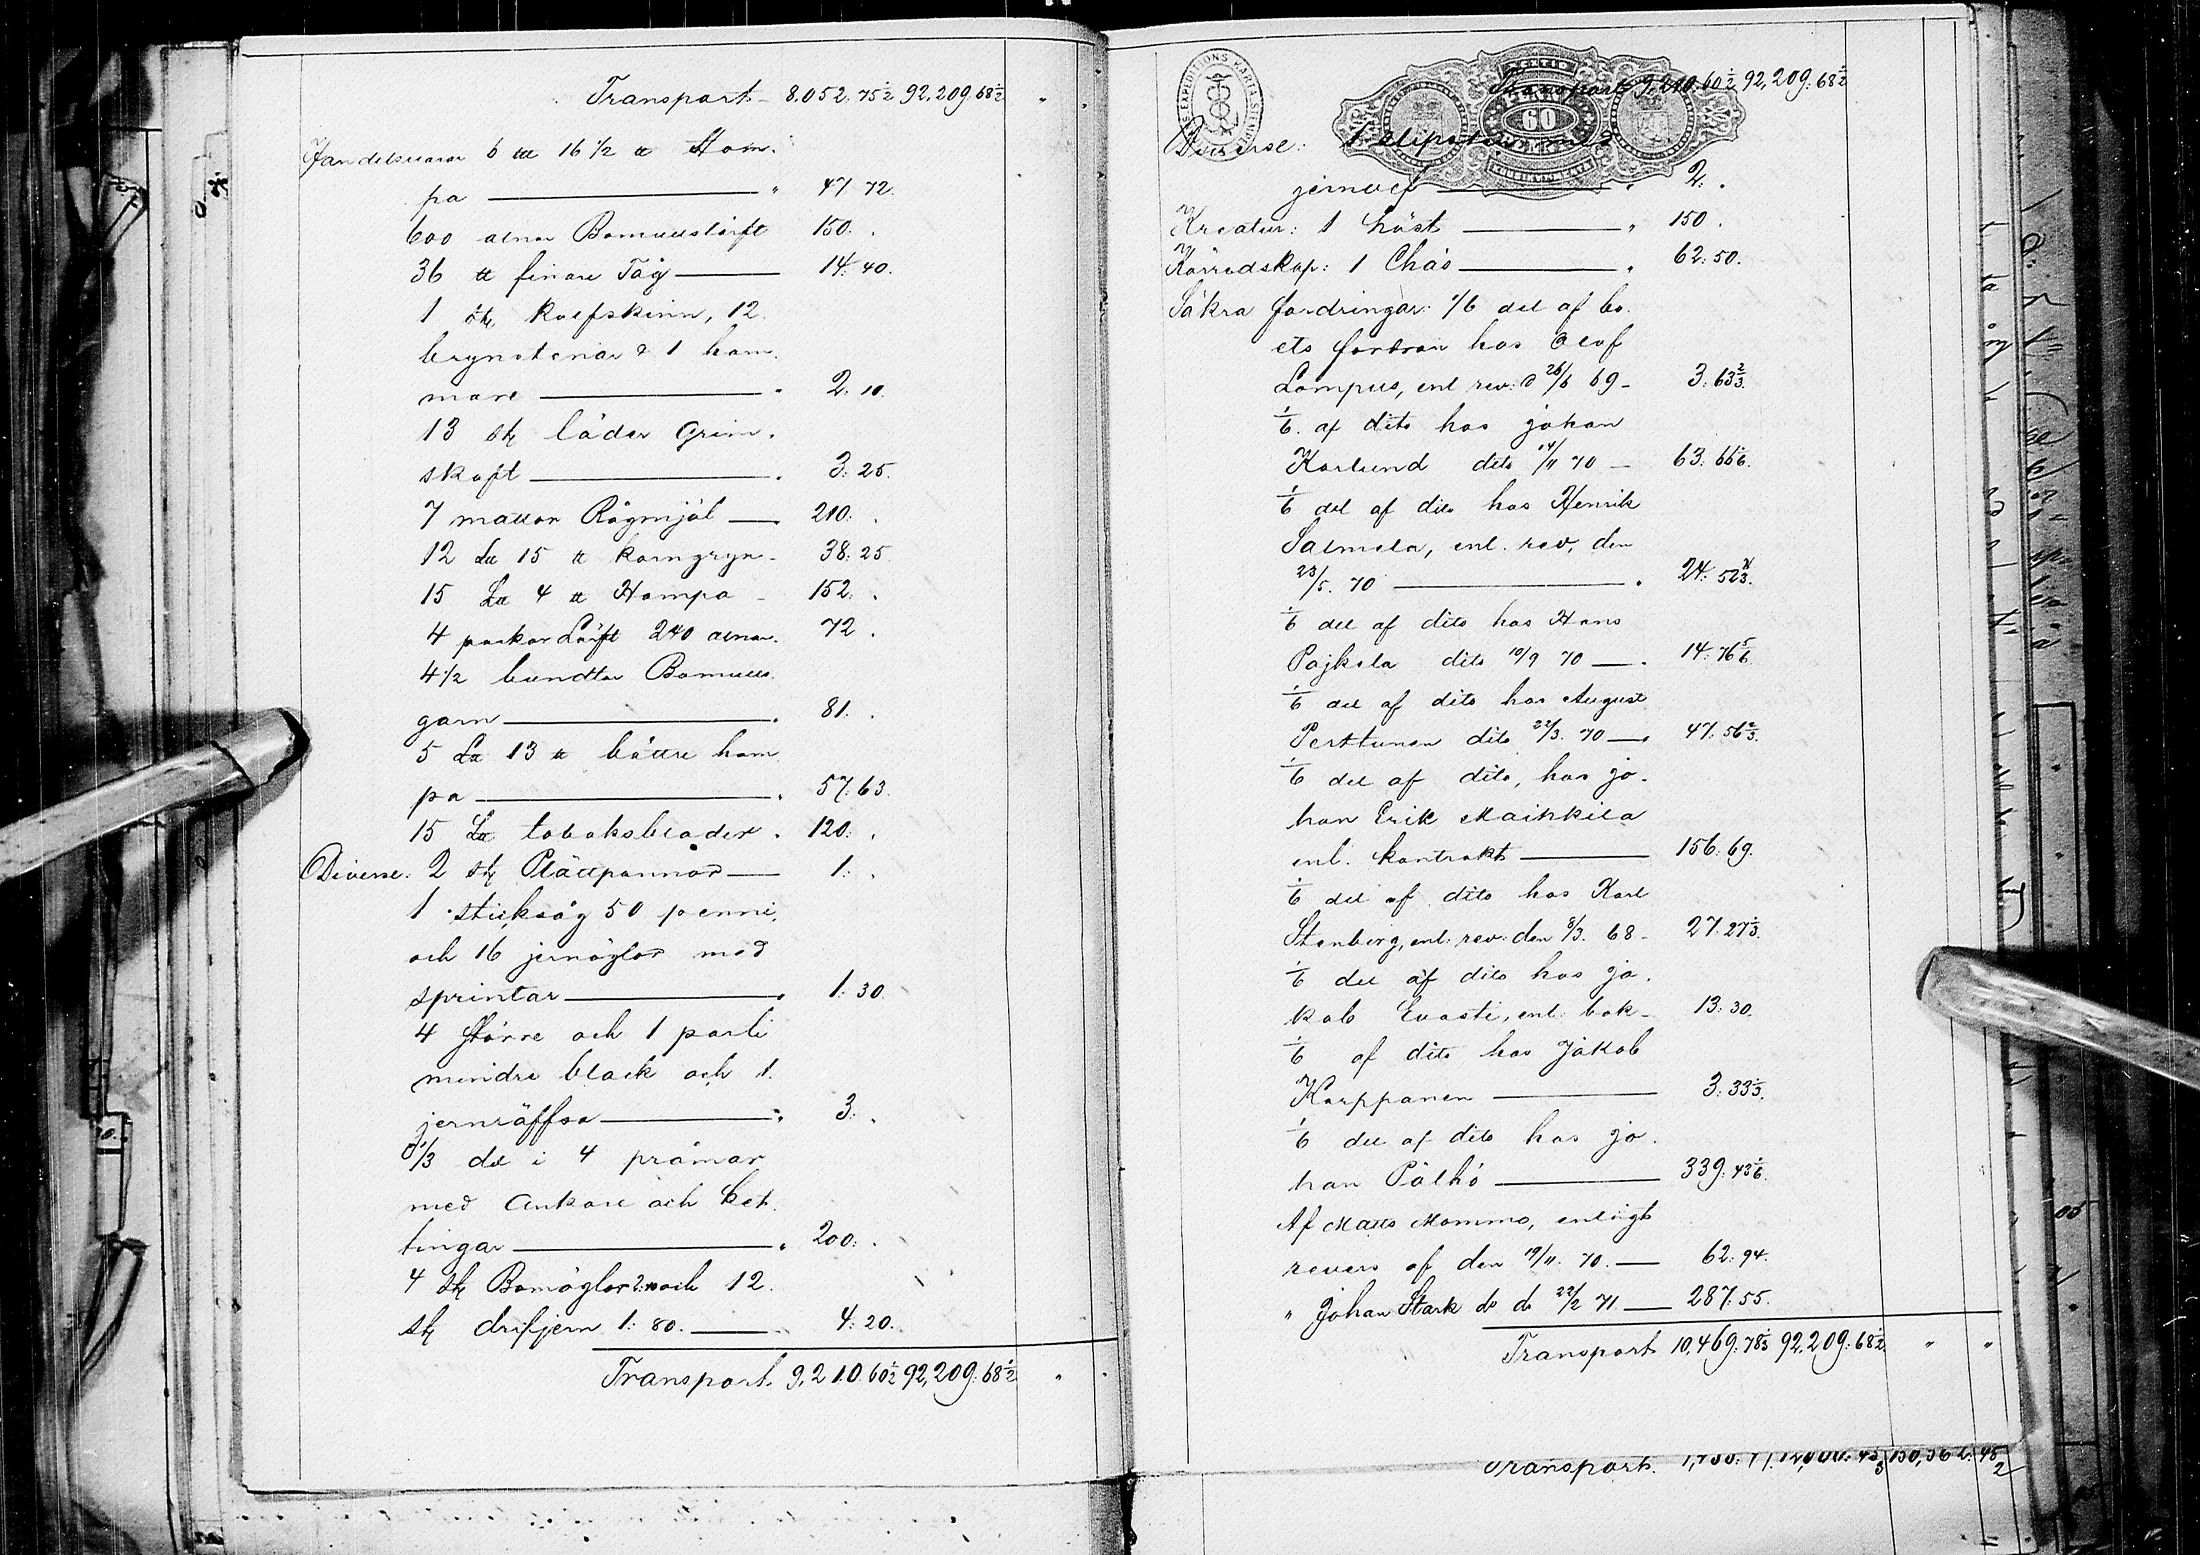 Transport 8.052. 75½ 92,209. 68½
Handelsvaror 6 ₶ 16½ ℔ Ham-
pa " 47. 72.
600 alnar Bomullslärft 150. .
36 ℔ finare Tåg 14. 40.
1 st. Kalfskinn, 12
brynstenar & 1 ham-
mare 2. 10.
13 st. läder Grim-
skaft 3: 25.
7 mattor Rågmjöl 210: .
12 L℔ 15 ℔ korngryn 38: 25
15 L℔ 4 ℔ Hampa 152: .
4 packor Lärft 240 alnar. 72 .
4½ bundtar Bomulls
garn 81. .
5 L℔ 13 ℔ bättre ham
pa 57. 63.
15 L℔ tobaksblader. 120: .
Diverse. 2 st. Plättpannor 1: .
1 sticksåg 50 penni,
och 16 jernöglor med
sprintar 1: 30.
4 större och 1 parti
mindre black och 1.
jernräffsa 3: .
⅓ del i 4 pråmar
med Ankare och ket-
tingar 200: .
4 st. Bomöglor 2: och 12.
st. drifjern 1: 80. 4: 20.
Transport. 9,210. 60½ 92,209. 68½
60
Transport 9,210. 60½ 92,209. 68½
Diverse: 1 slipsten med
jernvef " 2. .
Kreatur: 1 häst " 150 .
Körredskap: 1 Chäs " 62: 50.
Säkra fordringar: 1/6 del af bo-
ets fordran hos Olof
Lampus, enl rev: d 26/6 69 3. 63⅔.
1/6. af dito hos Johan
Karlund dito 14/11 70 63. 66
1/6 del af dito hos Henrik
Salmela, enl. rev, den
23/5. 70 24. 52⅔.
1/6 del af dito hos Hans
Pajkela dito 10/9 70 14: 76⅚.
1/6 del af dito hos August
Perttunen dito 22/3. 70 47. 56⅔.
1/6 del af dito, hos Jo-
han Erik Maihkila
enl. kontrakt 156. 69.
1/6 del af dito hos Karl
Stenberg, enl: rev: den 8/3. 68 27. 27⅓.
1/6 del af dito hos Ja-
kob Evasti, enl: bok 13: 30.
1/6 af dito hos Jakob
Karppanen 3: 33⅓.
1/6 del af dito hos Jo-
han Pälhö 339: 43
Af Matts Mommo, enligt
revers af den 19/11. 70. 62: 94.
" Johan Stark do do 22/2 71 287. 55.
Transport 10,469. 78⅓ 92,209. 68½ " "
Transport.